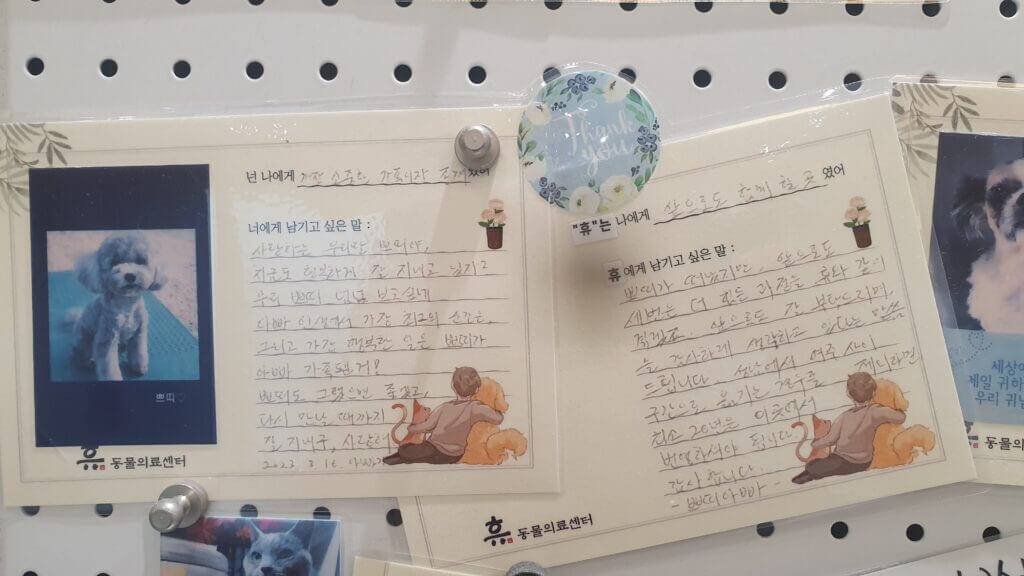 넌 나에게 가장 소중한 가족이자 존재였어
너에게 남기고 싶은 말 :
사랑하는 우리딸 쁘띠야,
지금도 행복하게 잘 지내고 있지?
우리 쁘띠 너무 보고싶네
아빠 인생에서 가장 최고의 순간은,
그리고 가장 행복한 일은 쁘띠가
아빠 가족된거!
쁘띠도 그랬으면 좋겠고,
다시 만날 때까지
잘 지내구, 사랑해
2023. 3. 16
쁘띠♡
휴 동물의료센터
Thank you
"휴"는 나에게 앞으로도 함께 할 곳 였어
휴에게 남기고 싶은 말 :
쁘띠가 떠났지만, 앞으로도
세번은 더 힘든 과정을 휴와 같이
앞으로도 잘 부탁드리며,
늘 감사하게 생각하고 있다는 말씀
드립니다.
최소 20년은 이곳에서
번영하셔야 됩니다.
감사합니다.
- 쁘띠아빠 -
휴 동물의료센터
세상에
제일 귀하
우리 귀
동물의료센터